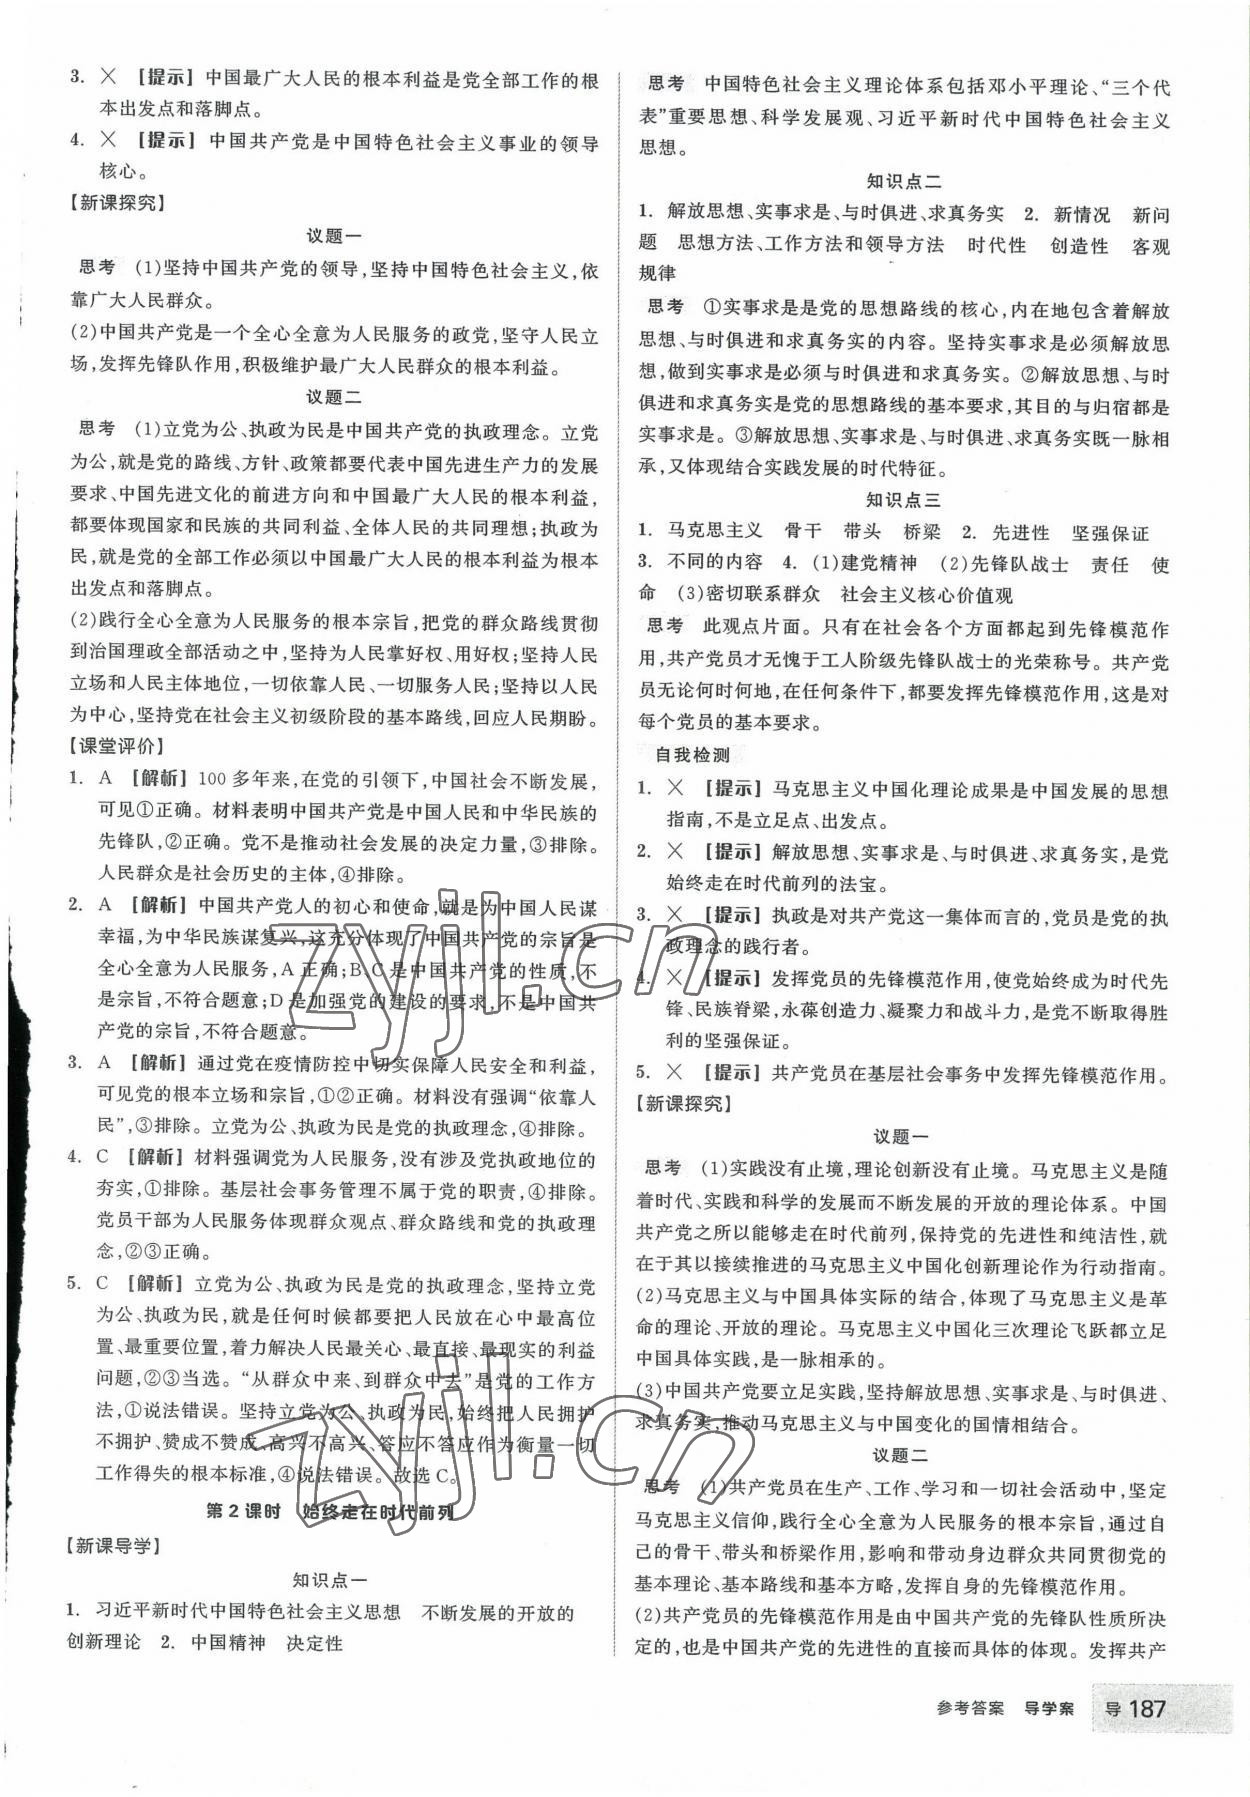 3. ✕ [提示]中国最广大人民的根本利益是党全部工作的根
本出发点和落脚点。
4. ✕ [提示]中国共产党是中国特色社会主义事业的领导
核心。
【新课探究】
议题一
思考 (1)坚持中国共产党的领导,坚持中国特色社会主义,依
靠广大人民群众。
(2)中国共产党是一个全心全意为人民服务的政党,坚守人民立
场,发挥先锋队作用,积极维护最广大人民群众的根本利益。
议题二
思考 (1)立党为公、执政为民是中国共产党的执政理念。立党
为公,就是党的路线、方针、政策都要代表中国先进生产力的发展
要求、中国先进文化的前进方向和中国最广大人民的根本利益,
都要体现国家和民族的共同利益、全体人民的共同理想;执政为
民,就是党的全部工作必须以中国最广大人民的根本利益为根本
出发点和落脚点。
(2)践行全心全意为人民服务的根本宗旨,把党的群众路线贯彻
到治国理政全部活动之中,坚持为人民掌好权、用好权;坚持人民
立场和人民主体地位,一切依靠人民、一切服务人民;坚持以人民
为中心,坚持党在社会主义初级阶段的基本路线,回应人民期盼。
【课堂评价】
1. A [解析]100多年来,在党的引领下,中国社会不断发展,
可见①正确。材料表明中国共产党是中国人民和中华民族的
先锋队,②正确。党不是推动社会发展的决定力量,③排除。
人民群众是社会历史的主体,④排除。
2. A [解析]中国共产党人的初心和使命,就是为中国人民谋
幸福,为中华民族谋复兴,这充分体现了中国共产党的宗旨是
全心全意为人民服务,A正确;B、C是中国共产党的性质,不
是宗旨,不符合题意;D是加强党的建设的要求,不是中国共
产党的宗旨,不符合题意。
3. A [解析]通过党在疫情防控中切实保障人民安全和利益,
可见党的根本立场和宗旨,①②正确。材料没有强调“依靠人
民”,③排除。立党为公、执政为民是党的执政理念,④排除。
4. C [解析]材料强调党为人民服务,没有涉及党执政地位的
夯实,①排除。基层社会事务管理不属于党的职责,④排除。
党员干部为人民服务体现群众观点、群众路线和党的执政理
念,②③正确。
5. C [解析]立党为公、执政为民是党的执政理念,坚持立党
为公、执政为民,就是任何时候都要把人民放在心中最高位
置、最重要位置,着力解决人民最关心、最直接、最现实的利益
问题,②③当选。“从群众中来、到群众中去”是党的工作方
法,①说法错误。坚持立党为公、执政为民,始终把人民拥护
不拥护、赞成不赞成、高兴不高兴、答应不答应作为衡量一切
工作得失的根本标准,④说法错误。故选C。
第2课时 始终走在时代前列
【新课导学】
知识点一
1. 习近平新时代中国特色社会主义思想 不断发展的开放的
创新理论 2. 中国精神 决定性
思考 中国特色社会主义理论体系包括邓小平理论、“三个代
表”重要思想、科学发展观、习近平新时代中国特色社会主义
思想。
知识点二
1. 解放思想、实事求是、与时俱进、求真务实 2. 新情况 新问
题 思想方法、工作方法和领导方法 时代性 创造性 客观
规律
思考 ①实事求是是党的思想路线的核心,内在地包含着解放
思想、与时俱进和求真务实的内容。坚持实事求是必须解放思
想,做到实事求是必须与时俱进和求真务实。②解放思想、与时
俱进和求真务实是党的思想路线的基本要求,其目的与归宿都是
实事求是。③解放思想、实事求是、与时俱进、求真务实既一脉相
承,又体现结合实践发展的时代特征。
知识点三
1. 马克思主义 骨干 带头 桥梁 2. 先进性 坚强保证
3. 不同的内容 4. (1)建党精神 (2)先锋队战士 责任 使
命 (3)密切联系群众 社会主义核心价值观
思考 此观点片面。只有在社会各个方面都起到先锋模范作
用,共产党员才无愧于工人阶级先锋队战士的光荣称号。共产党
员无论何时何地,在任何条件下,都要发挥先锋模范作用,这是对
每个党员的基本要求。
自我检测
1. ✕ [提示]马克思主义中国化理论成果是中国发展的思想
指南,不是立足点、出发点。
2. ✕ [提示]解放思想、实事求是、与时俱进、求真务实,是党
始终走在时代前列的法宝。
3. ✕ [提示]执政是对共产党这一集体而言的,党员是党的执
政理念的践行者。
4. ✕ [提示]发挥党员的先锋模范作用,使党始终成为时代先
锋、民族脊梁,永葆创造力、凝聚力和战斗力,是党不断取得胜
利的坚强保证。
5. ✕ [提示]共产党员在基层社会事务中发挥先锋模范作用。
【新课探究】
议题一
思考 (1)实践没有止境,理论创新没有止境。马克思主义是随
着时代、实践和科学的发展而不断发展的开放的理论体系。中国
共产党之所以能够走在时代前列,保持党的先进性和纯洁性,就
在于其以接续推进的马克思主义中国化创新理论作为行动指南。
(2)马克思主义与中国具体实际的结合,体现了马克思主义是革
命的理论、开放的理论。马克思主义中国化三次理论飞跃都立足
中国具体实践,是一脉相承的。
(3)中国共产党要立足实践,坚持解放思想、实事求是、与时俱进、
求真务实,推动马克思主义与中国变化的国情相结合。
议题二
思考 (1)共产党员在生产、工作、学习和一切社会活动中,坚定
马克思主义信仰,践行全心全意为人民服务的根本宗旨,通过自
己的骨干、带头和桥梁作用,影响和带动身边群众共同贯彻党的
基本理论、基本路线和基本方略,发挥自身的先锋模范作用。
(2)共产党员的先锋模范作用是由中国共产党的先锋队性质所决
定的,也是中国共产党的先进性的直接而具体的体现。发挥共产
参考答案 导学案 导187
zyjl.cn
zyjl.cn